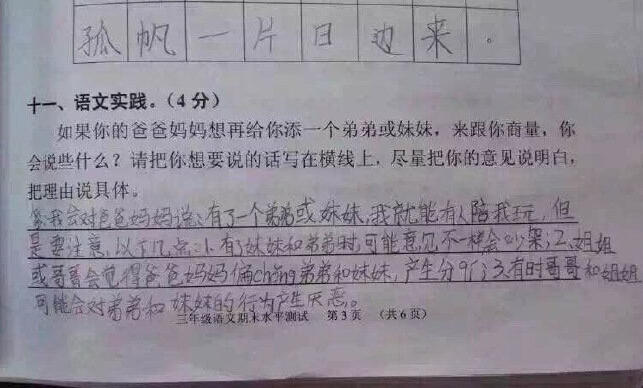 孤帆一片日边来。
十一、语文实践。(4分)
如果你的爸爸妈妈想再给你添一个弟弟或妹妹，来跟你商量，你
会说些什么？请把你想要说的话写在横线上，尽量把你的意见说明白，
把理由说具体。
我会对爸爸妈妈说：有了一个弟弟或妹妹，我就能有人陪我玩，但
是要注意以下几点：1、有了妹妹和弟弟时，可能意见不一样会吵架；2、姐姐
或哥哥会觉得爸爸妈妈偏ching弟弟和妹妹，产生分qi；3、有时哥哥和姐姐
可能会对弟弟和妹妹的行为产生厌恶。
三年级语文期末水平测试 第3页 (共6页)